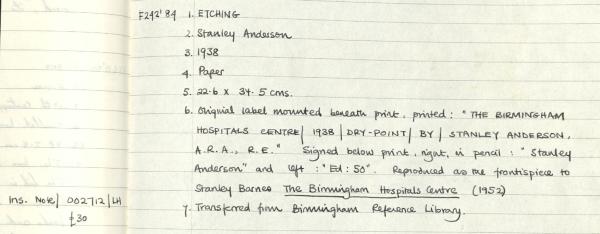 F242'84 1. ETCHING
2. Stanley Anderson
3. 1938
4. Paper
5. 22.6 x 34.5 cms.
6. Original label mounted beneath print, printed: "THE BIRMINGHAM
HOSPITALS CENTRE/ 1938 / DRY-POINT/ BY / STANLEY ANDERSON,
A.R.A., R.E." Signed below print, right, in pencil: "Stanley
Anderson" and left: "Ed: 50". Reproduced as the frontispiece to
Stanley Barnes The Birmingham Hospitals Centre (1952)
7. Transferred from Birmingham Reference Library.
Ins. Note/ 002712/LH
£30